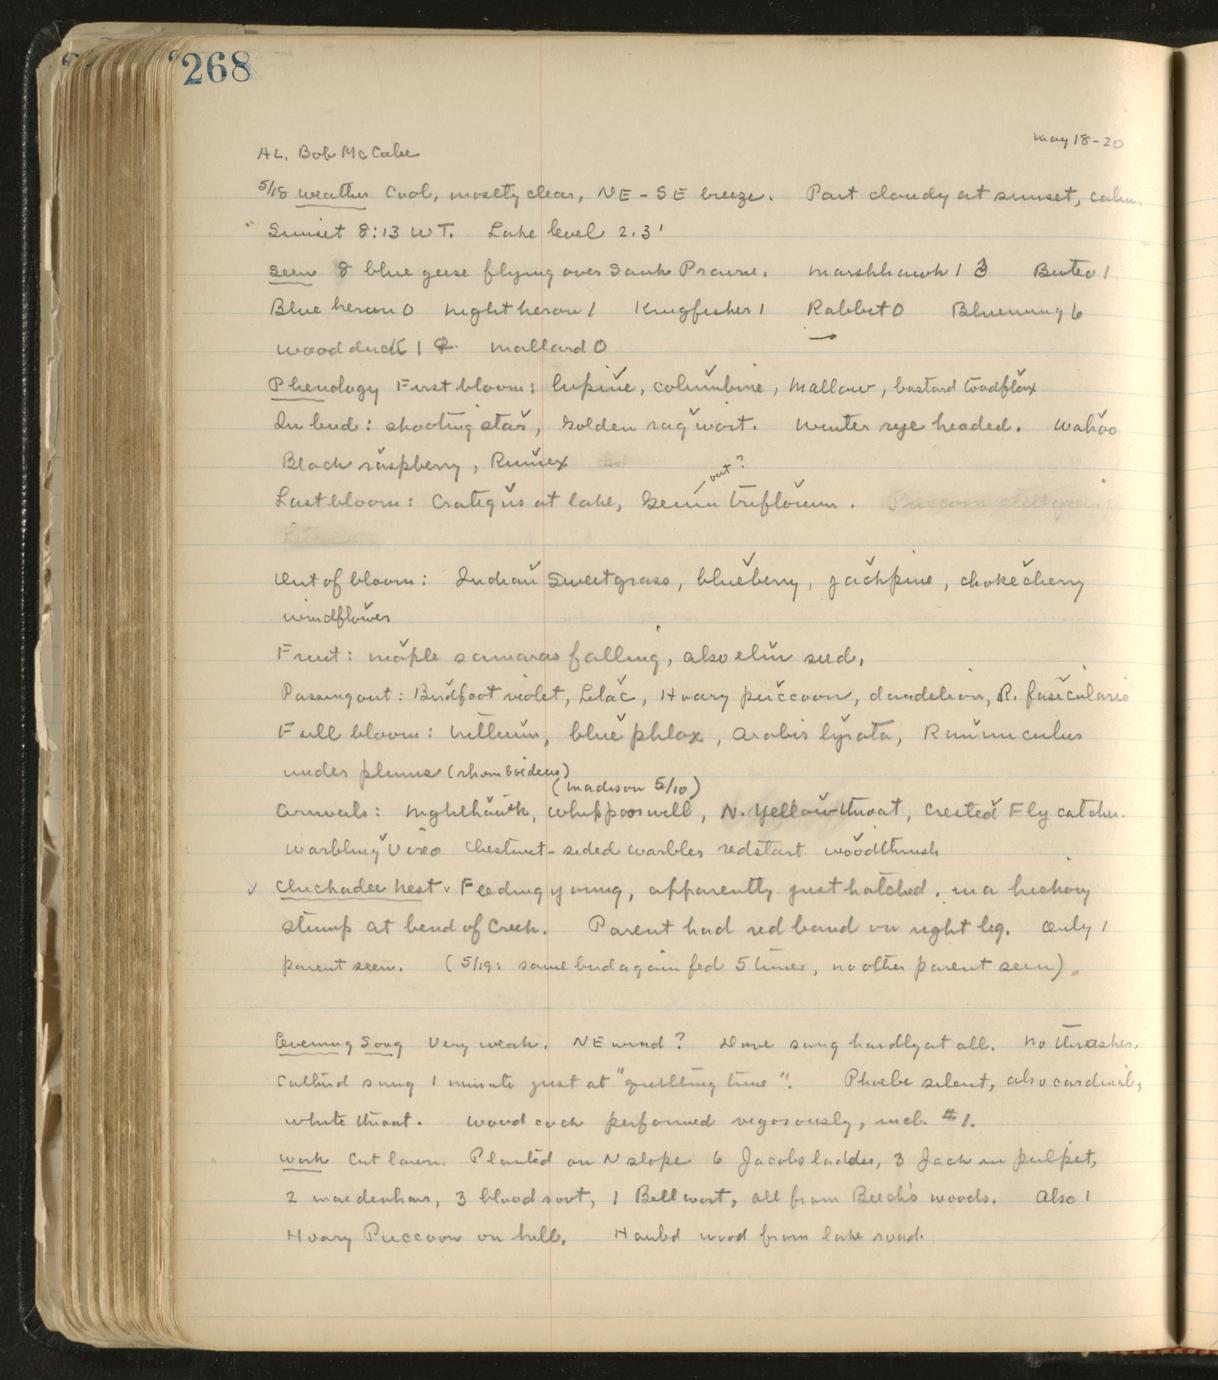 268
May 18-20
AL, Bob McCabe
5/18 weather Cool, mostly clear, NE-SE breeze. Part cloudy at sunset, calm.
Sunset 8:13 WT. Lake level 2.3'
Seen 8 blue geese flying over Sauk Prairie. Marshhawk 1 ♂ Buteo 1
Blue heron 0 Night heron 1 Kingfisher 1 Rabbit 0 Bluewing 6
Woodduck 1 ♀ Mallard 0
Phenology First bloom: lupine, columbine, mallow, bastard toadflax
In bud: shooting star, golden ragwort. Winter rye headed. Wahoo
Black raspberry, Rumex
out?
Last bloom: Crategus at lake, Geum triflorum. Puccoon
Out of bloom: Indian Sweetgrass, blueberry, jackpine, chokecherry
windflower
Fruit: maple samaras falling, also elm seed,
Passing out: Birdfoot violet, Lilac, Hoary puccoon, dandelion, R. fasicularis
Full bloom: trillium, blue phlox, Arabis lyrata, Ranunculus
under plums (rhomboideus)
(Madison 5/10)
Arrivals: Nighthawk, Whippoorwill, N. Yellowthroat, Crested Flycatcher.
Warbling Vireo Chestnut-sided warbler redstart woodthrush
Chickadee Nest. Feeding young, apparently just hatched, in a hickory
stump at bend of Creek. Parent had red band on right leg. Only 1
parent seen. (5/19: same bird again fed 5 times, no other parent seen).
Evening Song Very weak. NE wind? Dove sang hardly at all. No thrasher.
Catbird sang 1 minute just at "quitting time". Phoebe silent, also cardinal,
white throat. Woodcock performed vigorously, incl. #1.
Work Cut lawn. Planted on N slope 6 Jacobs ladder, 3 Jack in pulpit,
2 maidenhair, 3 bloodroot, 1 Bellwort, all from Beech's woods. Also 1
Hoary Puccoon on hill. Hauled wood from lake road.